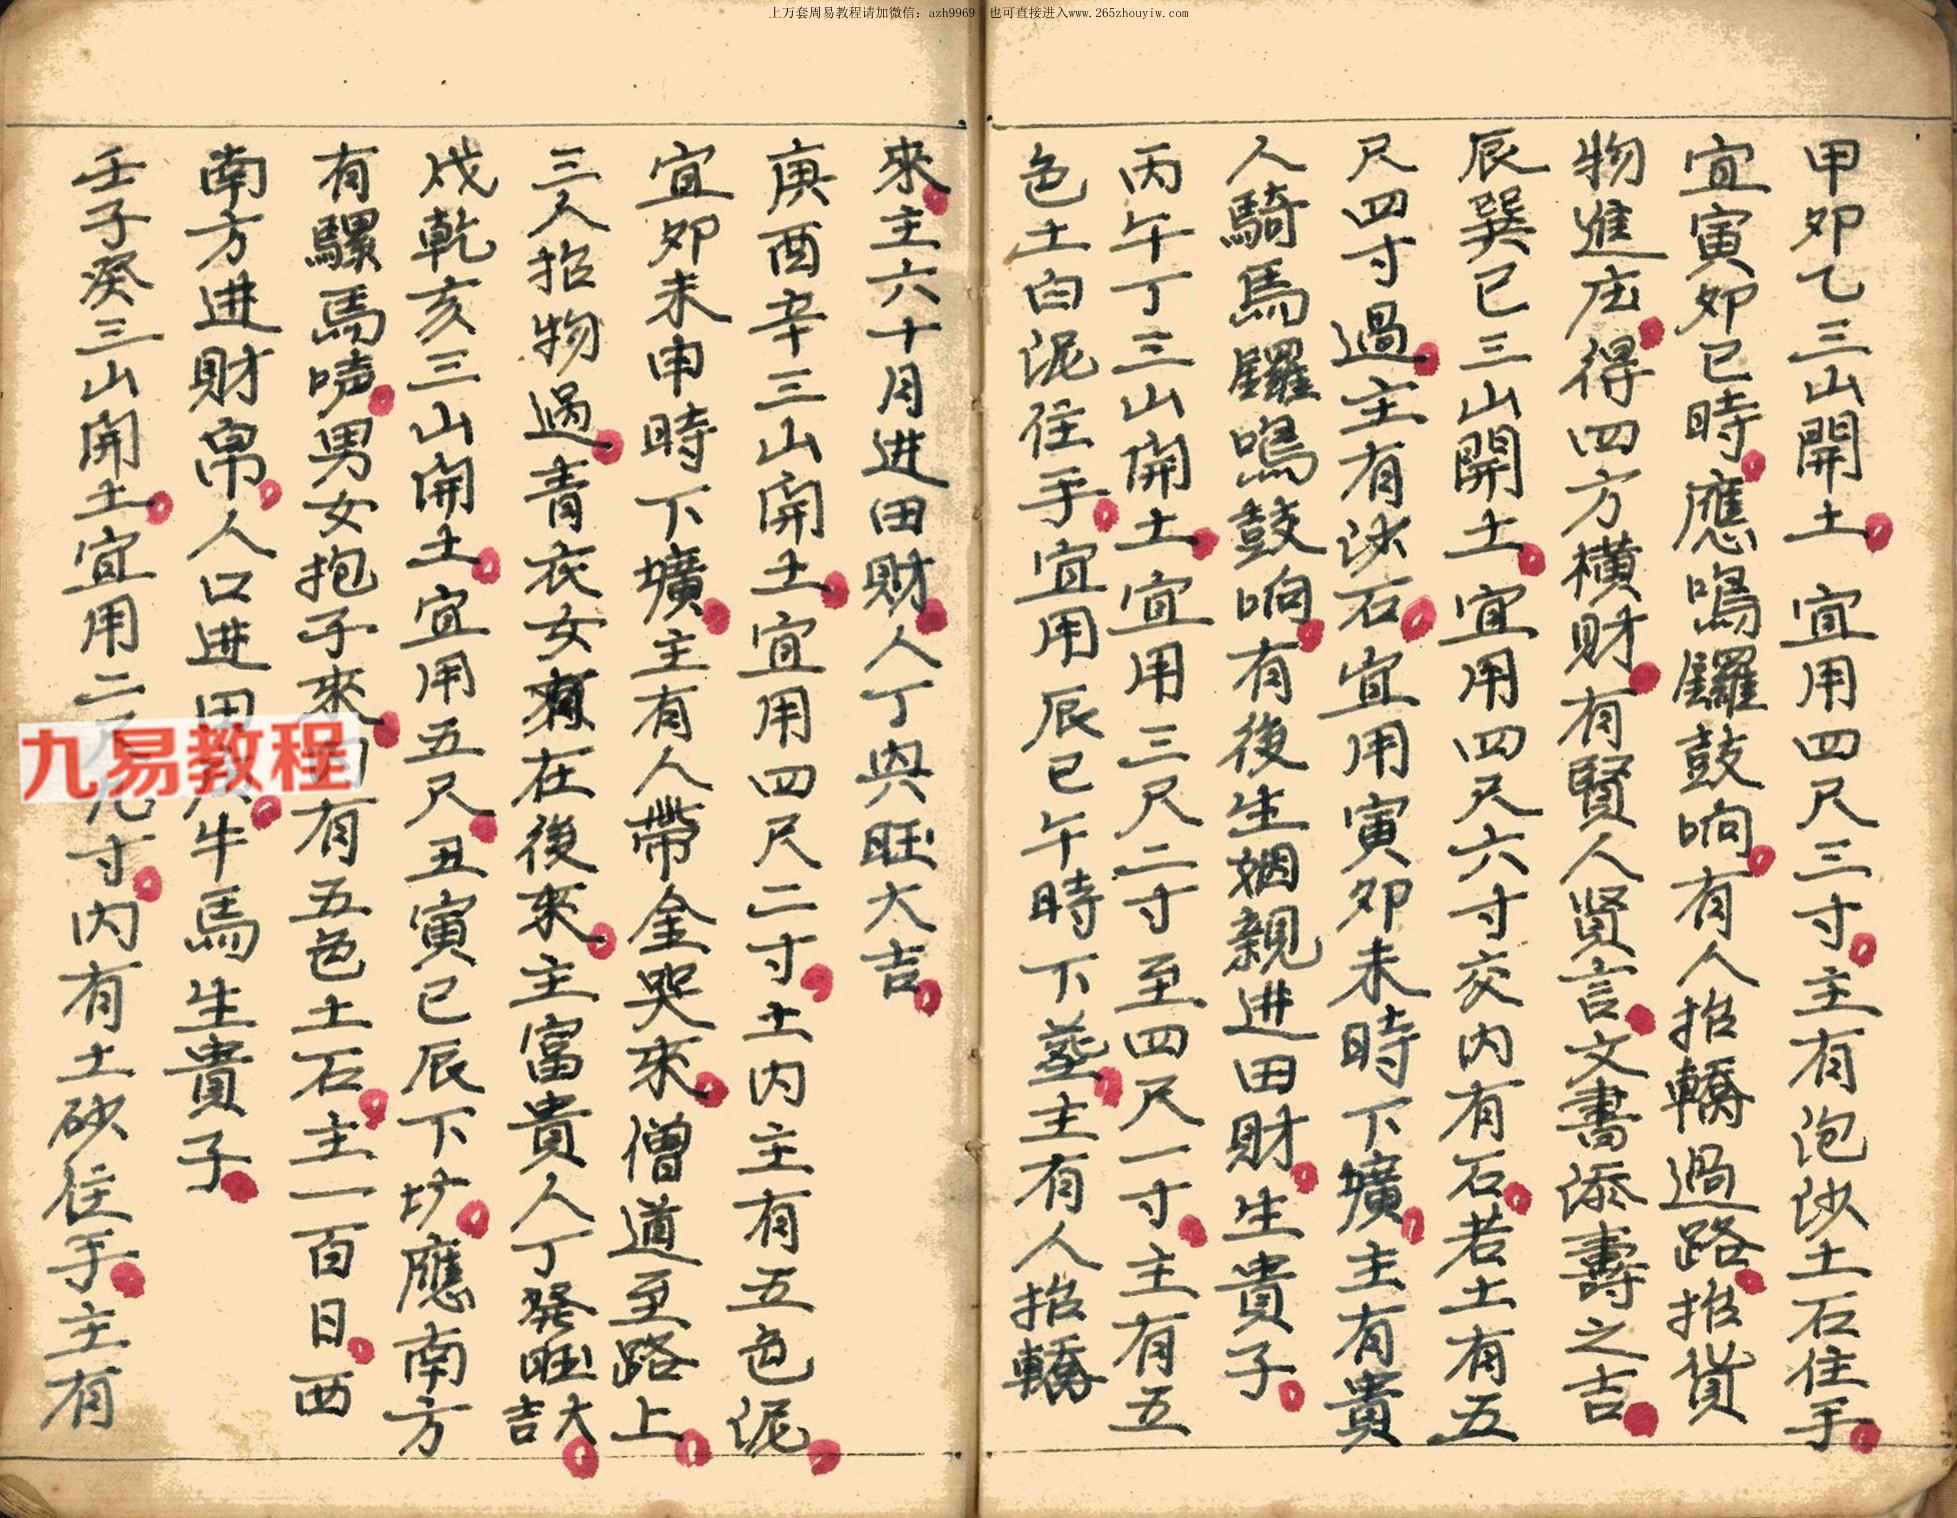 上万套周易教程请加微信：azh9969 也可直接进入www.265zhouyiw.com
甲卯乙三山開土宜用四尺三寸主有泡沙土石住手
宜寅卯巳時應鳴鑼鼓响有人抬轎過路抬貨
物進庄得四方橫財有賢人賢言文書添壽之吉
辰巽巳三山開土宜用四尺六寸交内有石若土有五
尺四寸過主有沙石宜用寅卯未時下壙主有貴
人騎馬鑼鳴鼓响有後生姻親进田財生貴子
丙午丁三山開土宜用三尺二寸至四尺一寸主有五
色土白泥住手宜用辰巳午時下塟主有人抬轎
來主六十月进田財人丁與旺大吉
庚酉辛三山開土宜用四尺二寸土内主有五色泥
宜卯未申時下壙主有人帶金哭來僧道至路上
三人抬物過青衣女在後來主富貴人丁発旺大吉
戌乾亥三山開土宜用五尺丑寅巳辰下圹應南方
有騾馬唤男女抱子來内有五色土石主一百日西
南方进財帛人口进田牛馬生貴子
壬子癸三山開土宜用二尺九寸内有土砂住手主有
九易教程